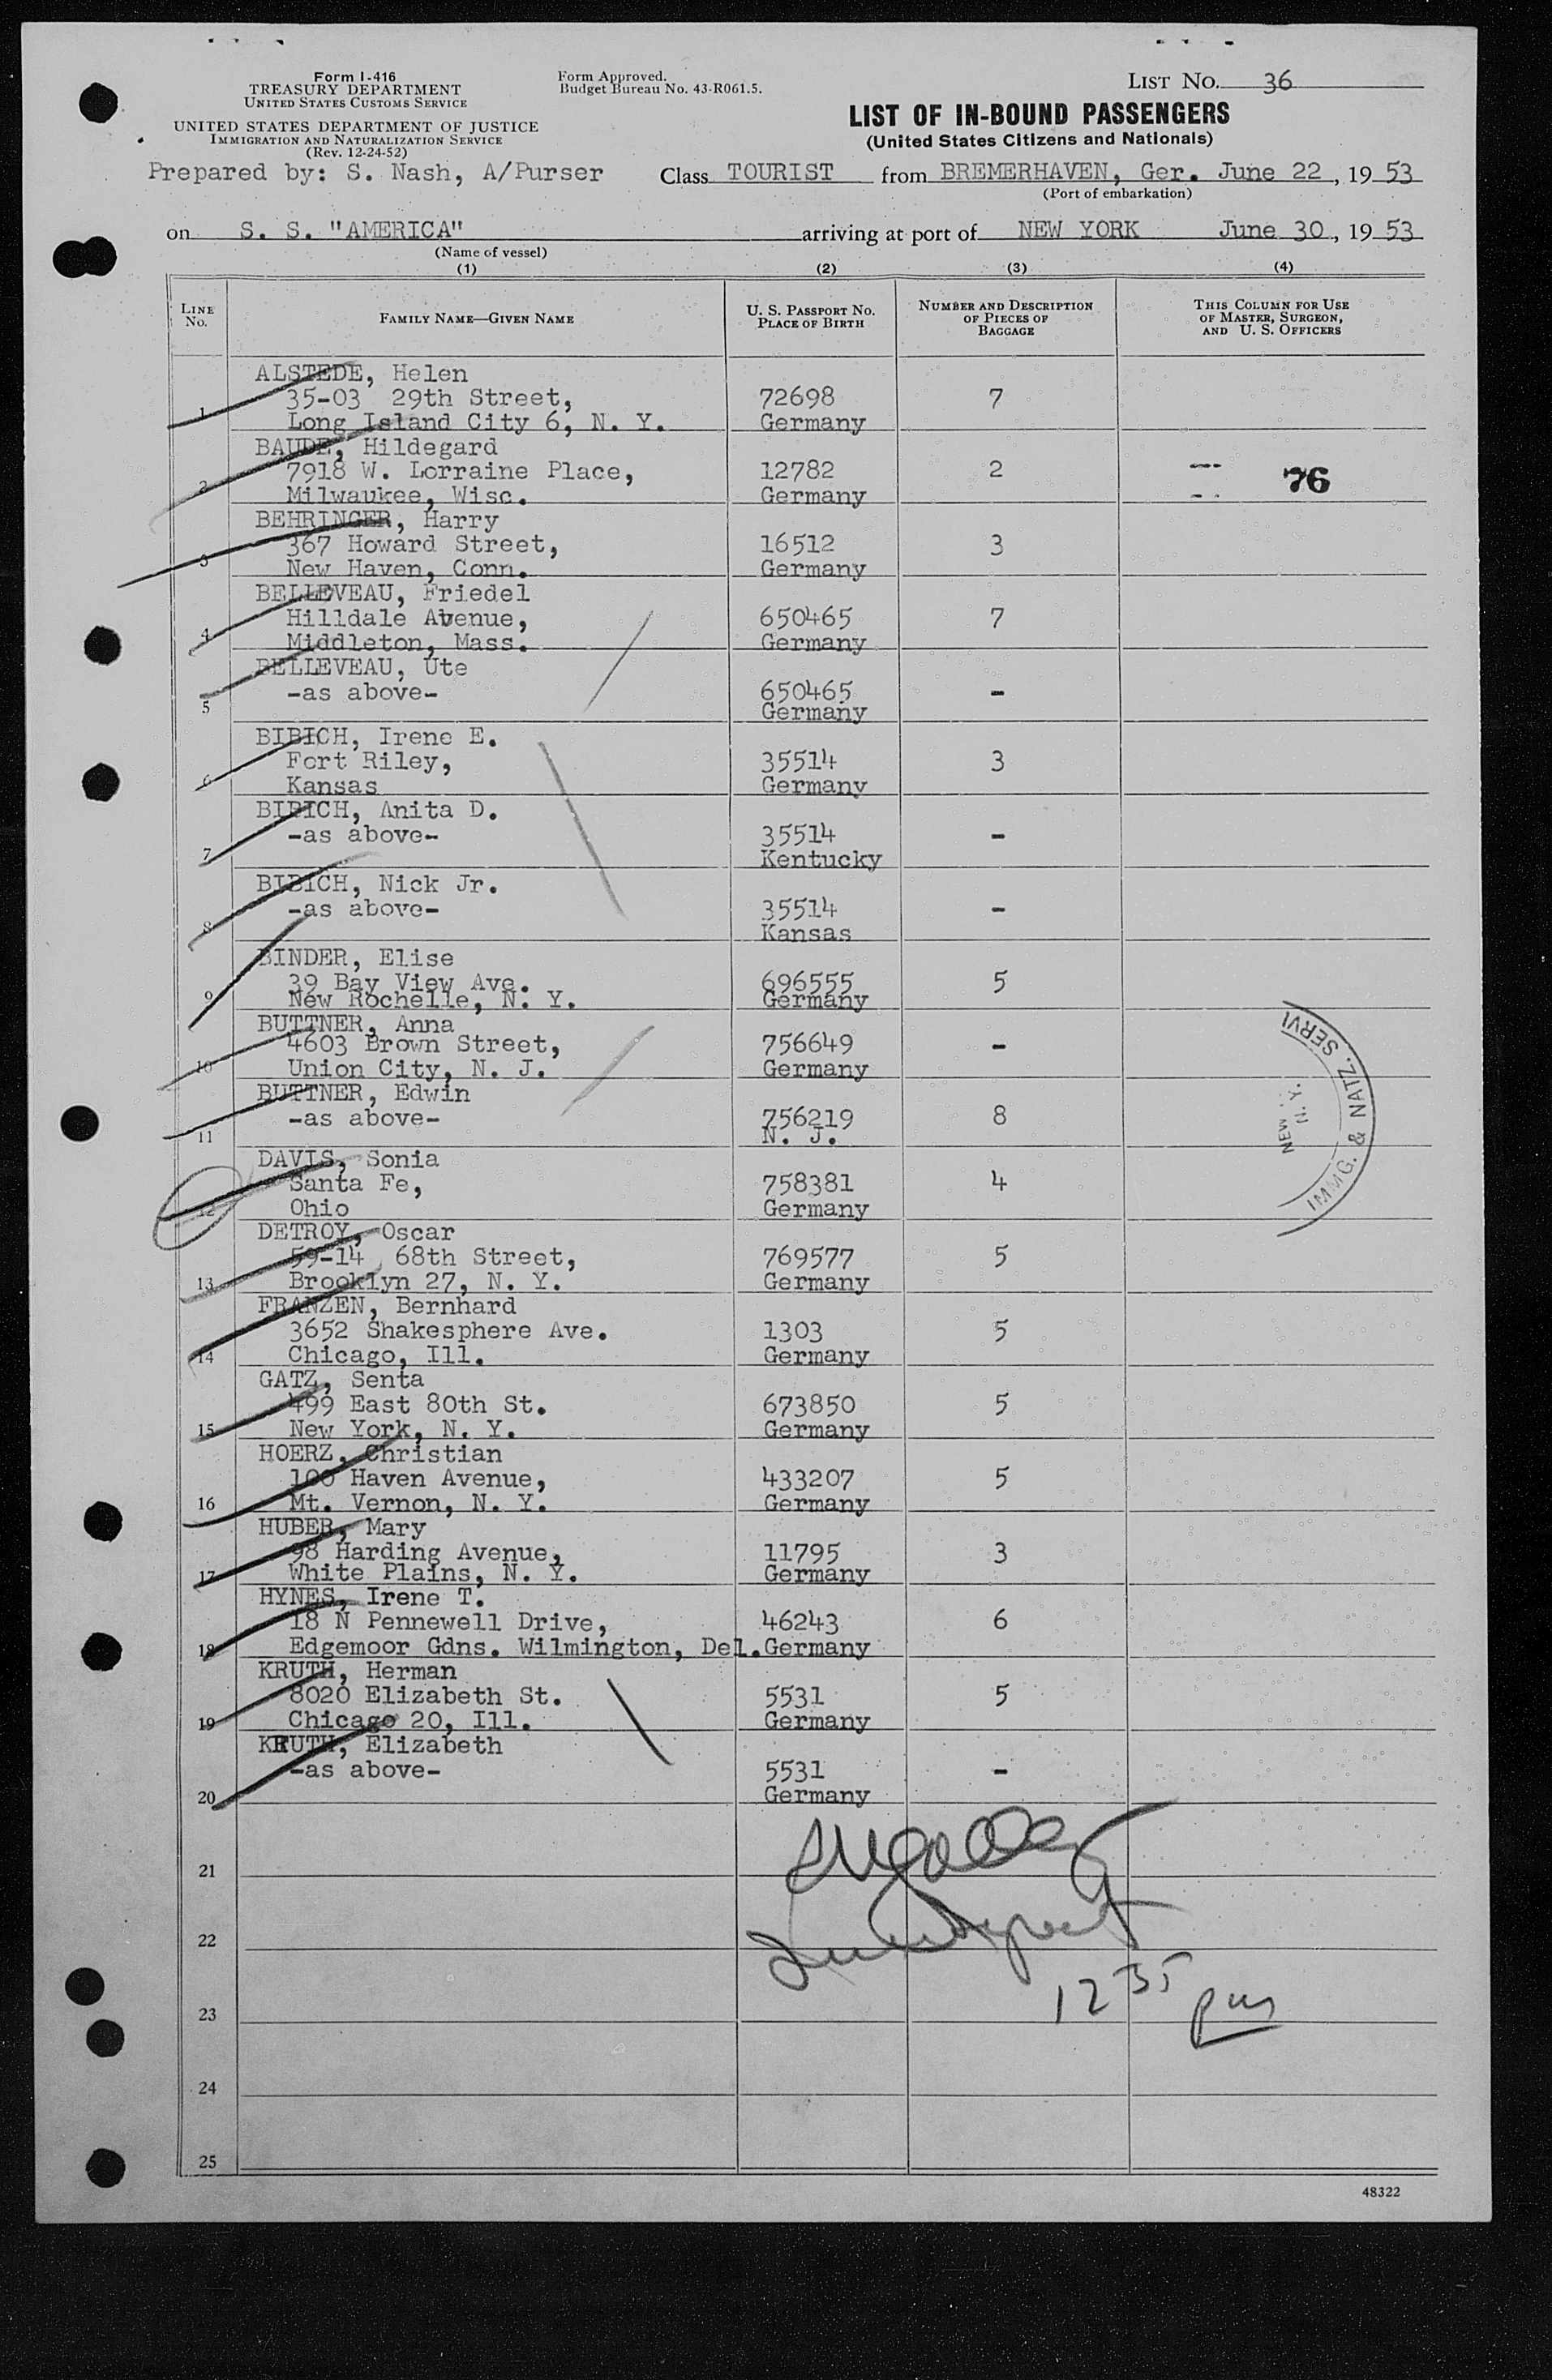 Form I-416
TREASURY DEPARTMENT
UNITED STATES CUSTOMS SERVICE
UNITED STATES DEPARTMENT OF JUSTICE
IMMIGRATION AND NATURALIZATION SERVICE
(Rev. 12-24-52)
Form Approved.
Budget Bureau No. 43-R061.5.
LIST NO. 36
LIST OF IN-BOUND PASSENGERS
(United States Citizens and Nationals)
Prepared by: S. Nash, A/Purser Class TOURIST from BREMERHAVEN, Ger. June 22, 19 53
(Port of embarkation)
on S. S. "AMERICA" arriving at port of NEW YORK June 30, 19 53
(Name of vessel)
(1) (2) (3) (4)
LINE NO. FAMILY NAME—GIVEN NAME U. S. PASSPORT NO. PLACE OF BIRTH NUMBER AND DESCRIPTION OF PIECES OF BAGGAGE THIS COLUMN FOR USE OF MASTER, SURGEON, AND U. S. OFFICERS
ALSTEDE, Helen
1 35-03 29th Street, 72698 7
Long Island City 6, N. Y. Germany
BAUDE, Hildegard
2 7918 W. Lorraine Place, 12782 2 76
Milwaukee, Wisc. Germany
BEHRINGER, Harry
3 367 Howard Street, 16512 3
New Haven, Conn. Germany
BELLEVEAU, Friedel
4 Hilldale Avenue, 650465 7
Middleton, Mass. Germany
BELLEVEAU, Ute
5 -as above- 650465 -
Germany
BIBICH, Irene E.
6 Fort Riley, 35514 3
Kansas Germany
BIBICH, Anita D.
7 -as above- 35514 -
Kentucky
BIBICH, Nick Jr.
8 -as above- 35514 -
Kansas
BINDER, Elise
9 39 Bay View Ave. 696555 5
New Rochelle, N. Y. Germany
BUTTNER, Anna
10 4603 Brown Street, 756649 -
Union City, N. J. Germany
BUTTNER, Edwin
11 -as above- 756219 8
N. J.
NEW
N. Y.
IMMG. & NATZ. SERVI
DAVIS, Sonia
12 Santa Fe, 758381 4
Ohio Germany
DETROY, Oscar
13 59-14 68th Street, 769577 5
Brooklyn 27, N. Y. Germany
FRANZEN, Bernhard
14 3652 Shakesphere Ave. 1303 5
Chicago, Ill. Germany
GATZ, Senta
15 499 East 80th St. 673850 5
New York, N. Y. Germany
HOERZ, Christian
16 100 Haven Avenue, 433207 5
Mt. Vernon, N. Y. Germany
HUBER, Mary
17 98 Harding Avenue, 11795 3
White Plains, N. Y. Germany
HYNES, Irene T.
18 18 N Pennewell Drive, 46243 6
Edgemoor Gdns. Wilmington, Del. Germany
KRUTH, Herman
19 8020 Elizabeth St. 5531 5
Chicago 20, Ill. Germany
KRUTH, Elizabeth
20 -as above- 5531 -
Germany
21
22
23 12 35 pm
24
25
48322